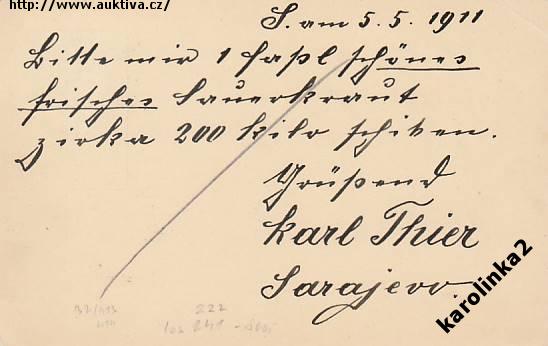 http://www.auktiva.cz/
S. am 5.5. 1911
Bitte mir 1 faßl schönes
frisches Sauerkraut
zirka 200 kilo schiken.
Grüßend
Karl Thier
Sarajevo.
222
karolinka2